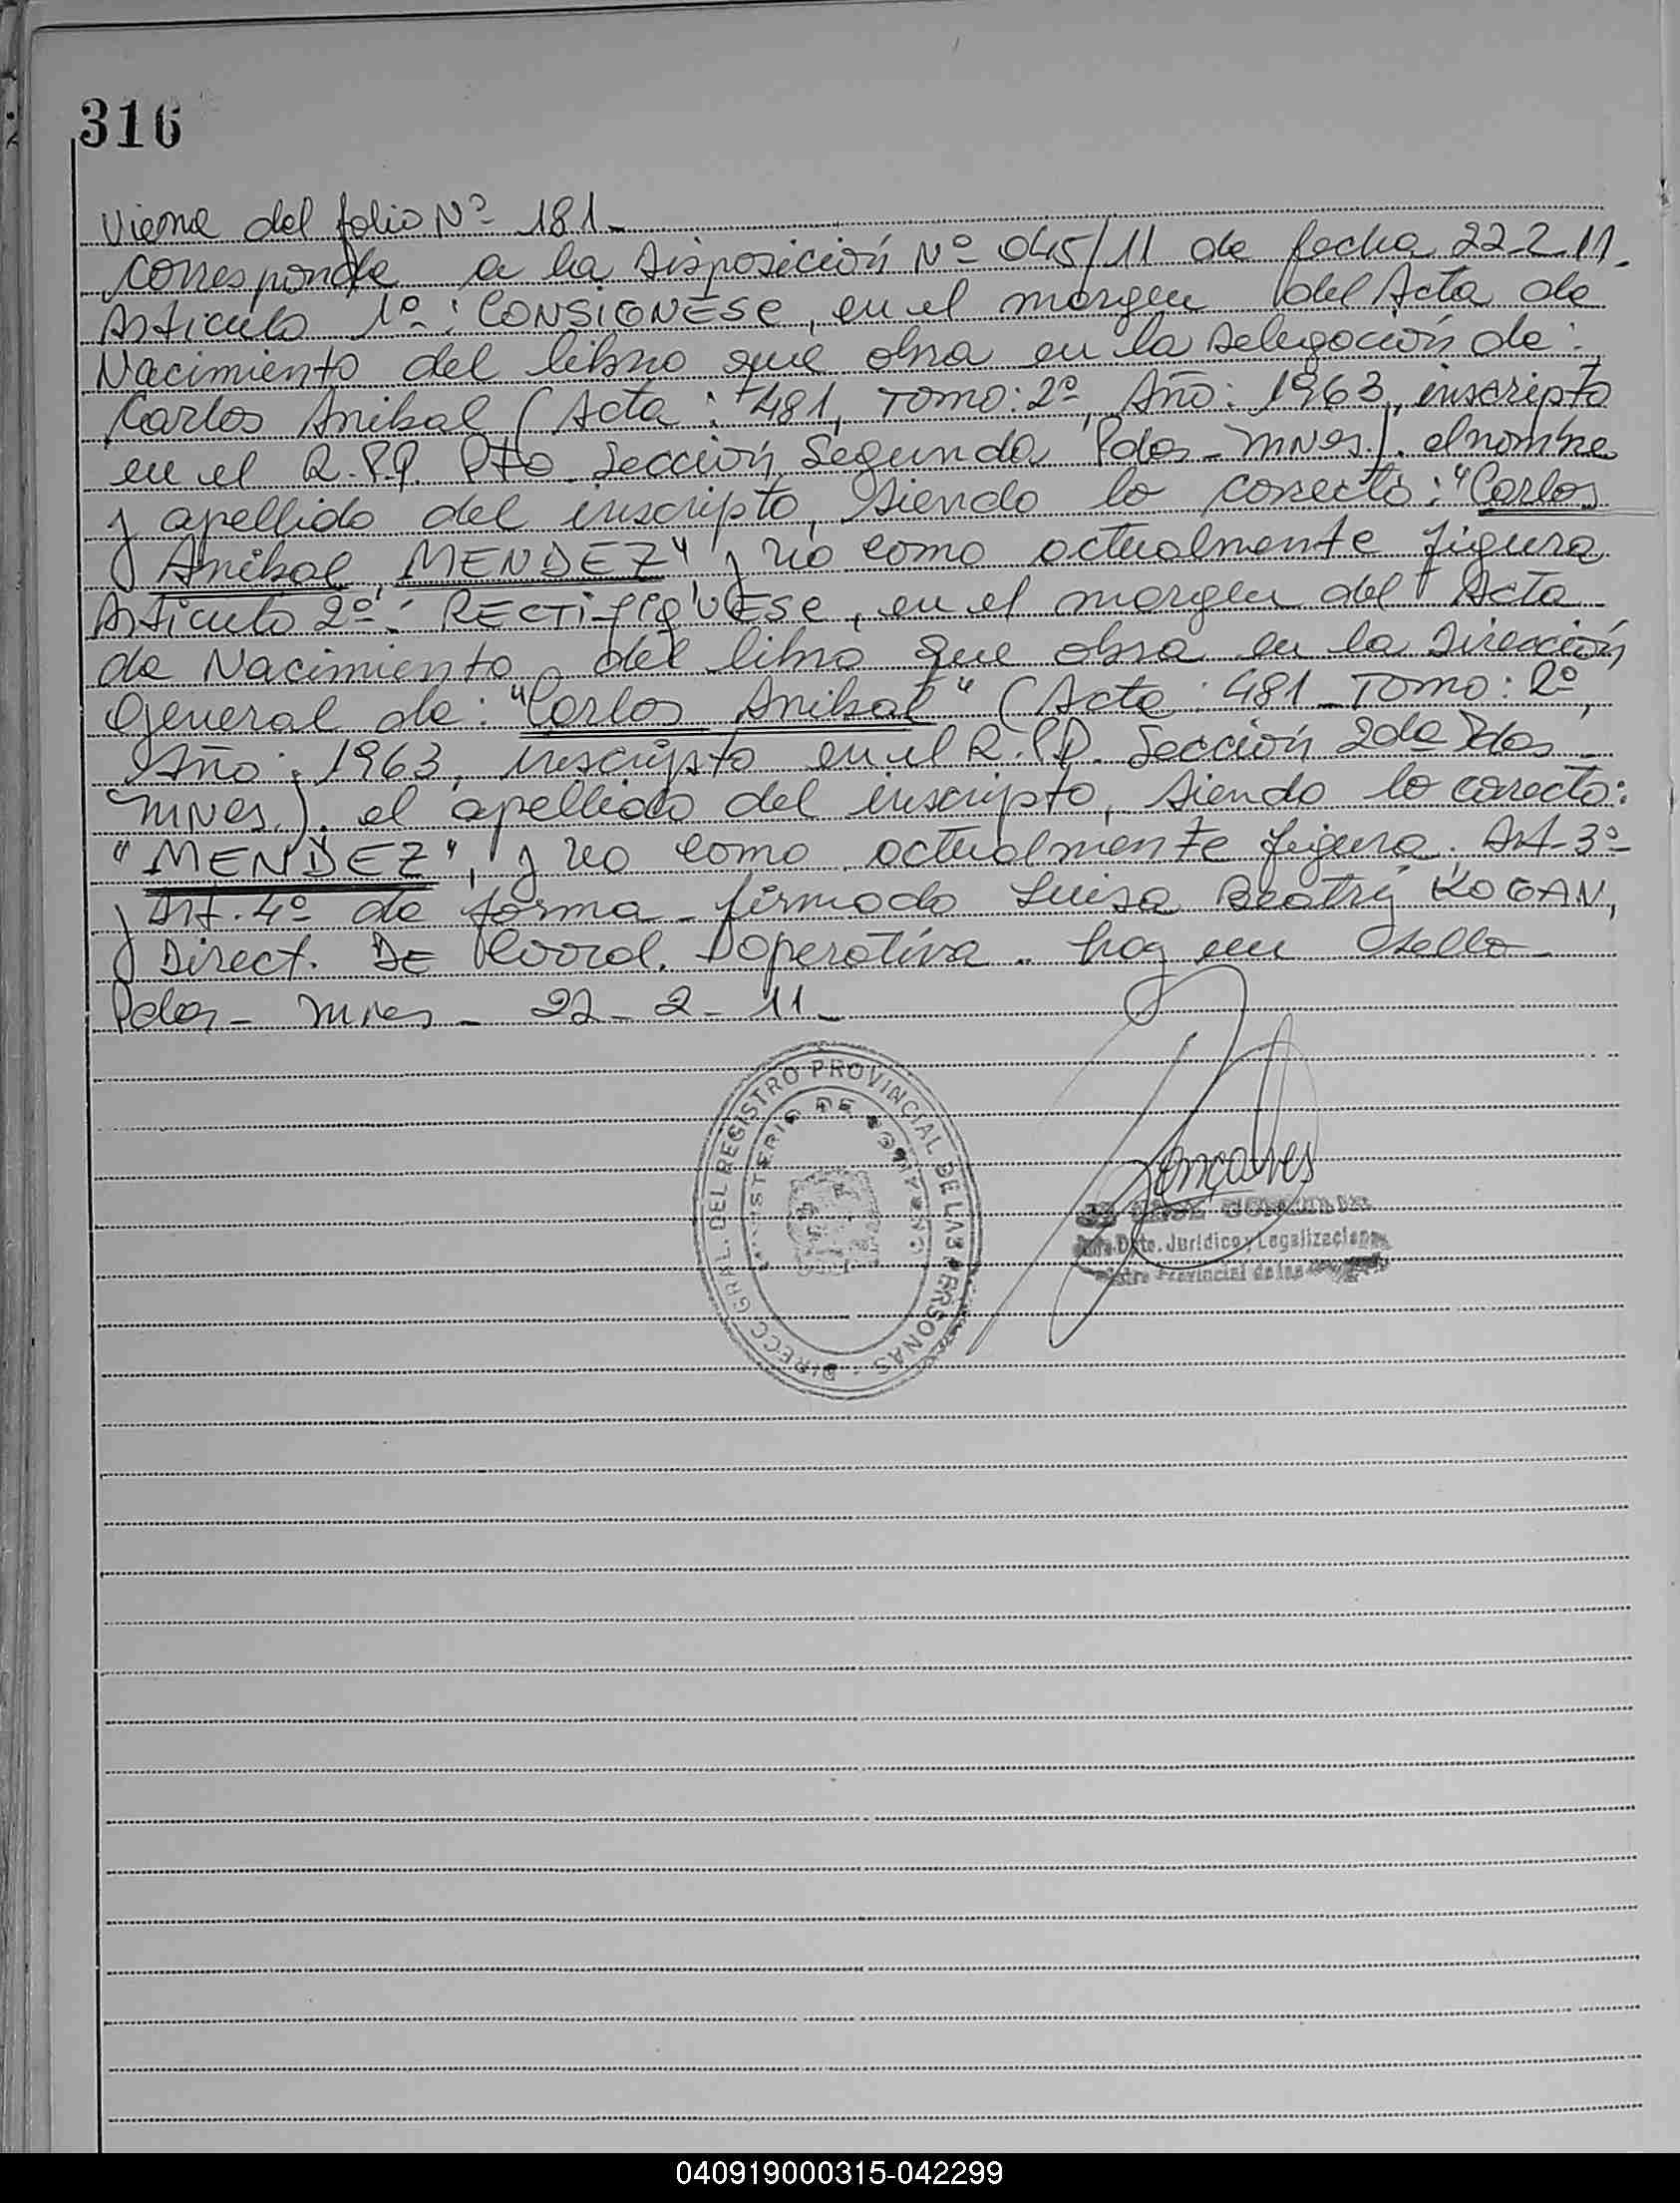 316
Viene del folio Nº 181-
corresponde a la Disposición Nº 045/11 de fecha 22-2-11.
Articulo 1º: CONSIGNESE, en el margen del Acta de
Nacimiento del libro que obra en la Delegación de:
Carlos Anibal (Acta: 481, Tomo: 2º, Año: 1963, inscripto
en el R.P.P. Pto Sección Segunda Pdas-Mnes). el nombre
y apellido del inscripto, siendo lo correcto: "Carlos
Anibal MENDEZ" y no como actualmente figura
Articulo 2º: RECTIFIQUESE, en el margen del Acta
de Nacimiento del libro que obra en la Dirección
General de: "Carlos Anibal" (Acta: 481-Tomo: 2º,
Año: 1963, inscripto en el R.P.P. Sección 2da Pdas-
Mnes.). el apellido del inscripto, siendo lo correcto:
"MENDEZ", y no como actualmente figura. Art-3º-
y Art. 4º de forma-firmado Luisa Beatriz KOGAN,
Direct. DE Coord. Operativa. hay un sello-
Pdas-Mnes-22-2-11-
DIRECC. GRAL. DEL REGISTRO PROVINCIAL DE LAS PERSONAS
MINISTERIO DE GOBIERNO
Goncalves
Dpto. Jurídico y Legalizaciones
Provincial de las
040919000315-042299